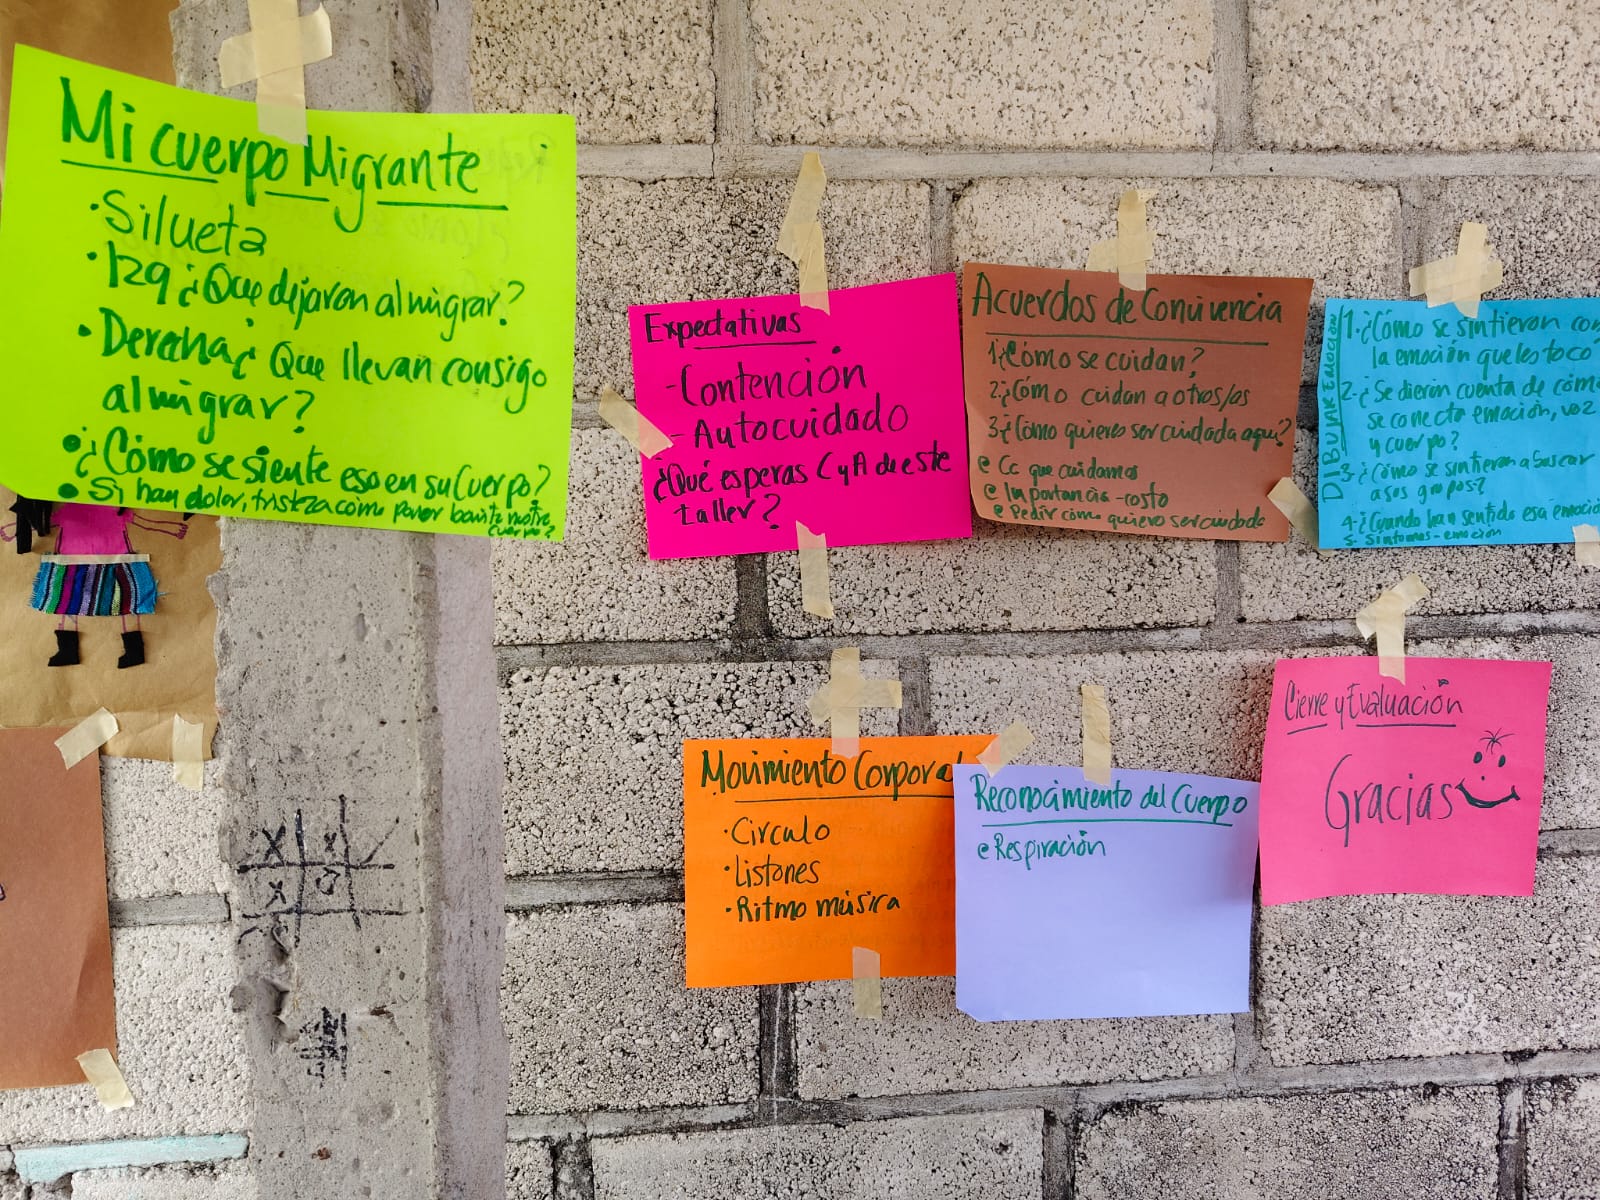 Mi cuerpo Migrante
• Silueta
• Izq ¿Que dejaron al migrar?
• Derecha ¿Que llevan consigo
al migrar?
• ¿Cómo se siente eso en su Cuerpo?
• Si hay dolor, tristeza como poner bonito nuestro
cuerpo?
Expectativas
- Contención
- Autocuidado
¿Qué esperas C y A de este
taller?
Acuerdos de Convivencia
1¿Cómo se cuidan?
2¿Cómo cuidan a otros/as
3¿Cómo quieres ser cuidada aquí?
Cc que cuidamos
Importancia - costo
Pedir cómo quiero ser cuidada
DIBUJAR EMOCIÓN
1.¿Cómo se sintieron con
la emoción que les toco?
2-¿Se dieron cuenta de cómo
se conecta emoción, voz
y cuerpo?
3-¿Cómo se sintieron a buscar
a sus grupos?
4-¿Cuando han sentido esa emoción
5- Sintomas - emoción
Movimiento Corporal
• Circulo
• Listones
• Ritmo música
Reconocimiento del Cuerpo
Respiración
Cierre y Evaluación
Gracias